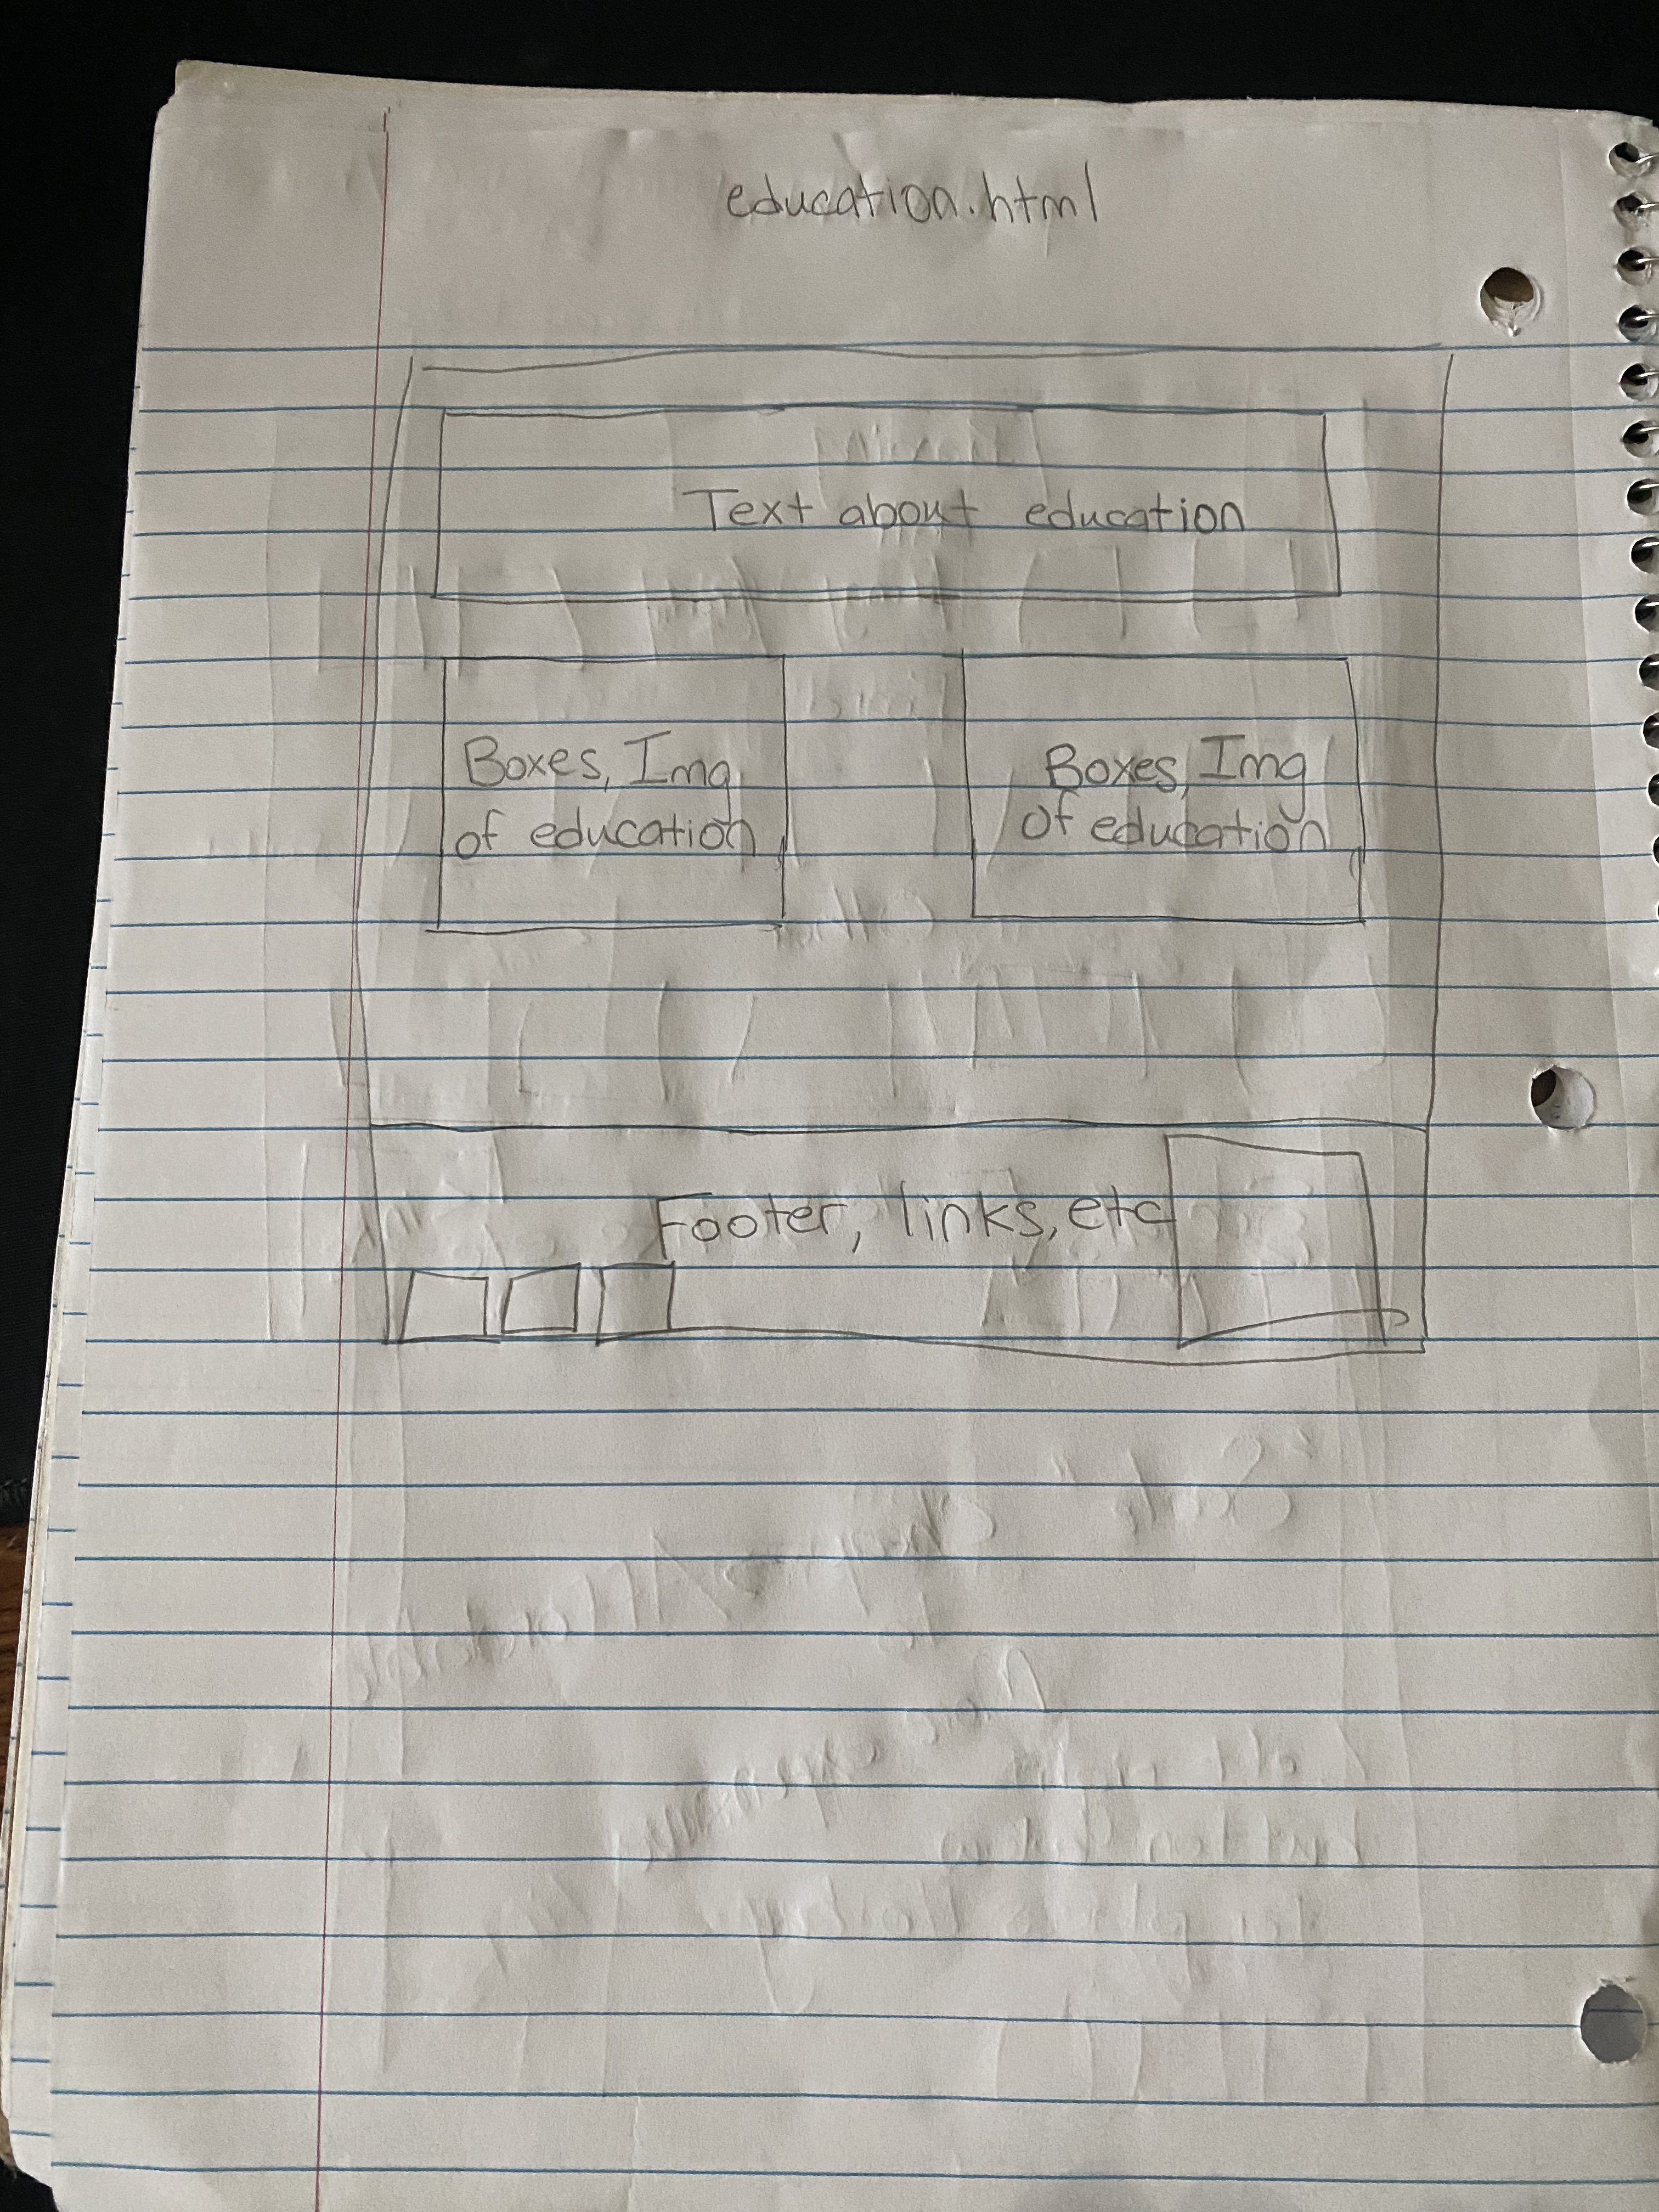 education.html
Text about education
Boxes, Img
of education
Boxes, Img
of education
Footer, links, etc